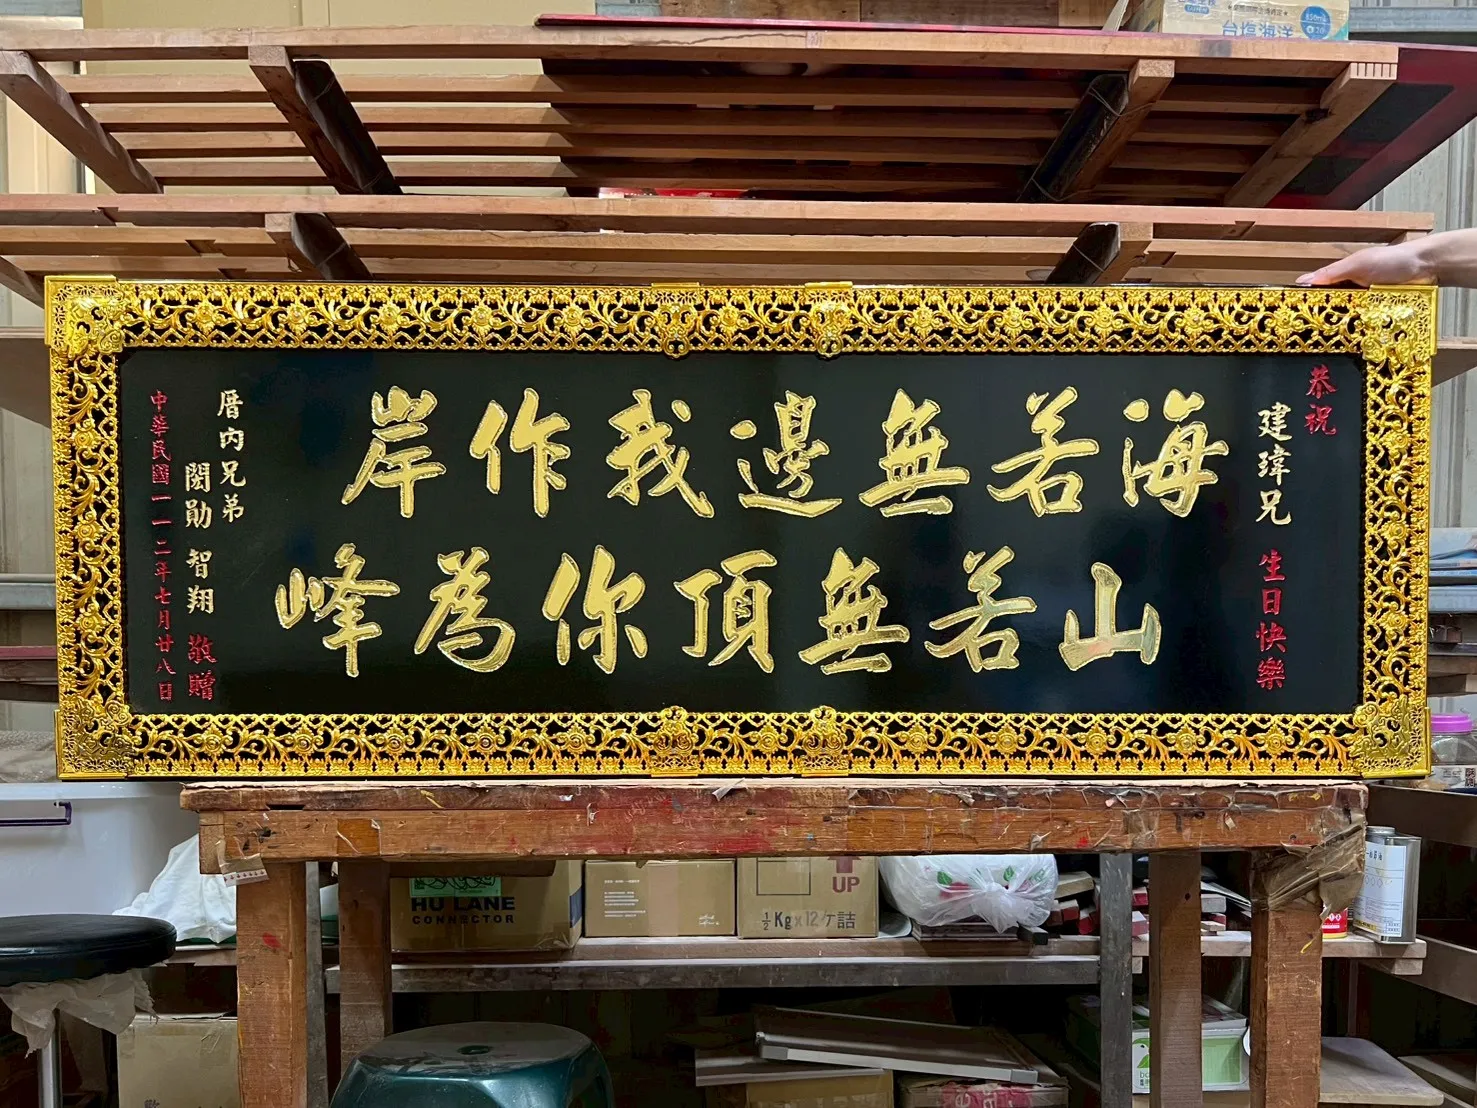 恭祝
建瑋兄 生日快樂
海若無邊我作岸
山若無頂你為峰
厝內兄弟
閔勛 智翔 敬贈
中華民國一一二年七月廿八日
台塩海洋
850ml
HU LANE
CONNECTOR
UP
½Kg×12ケ詰